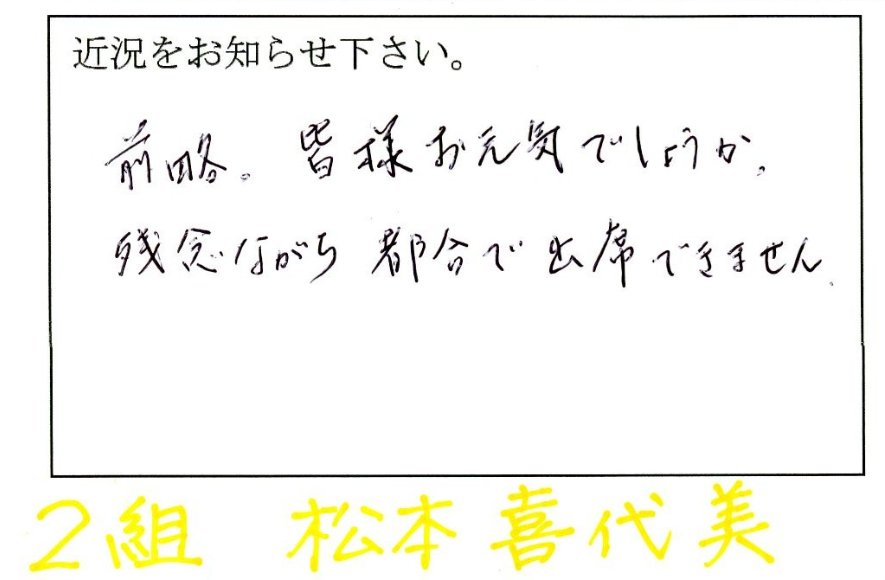 近況をお知らせ下さい。
前略。皆様お元気でしょうか。
残念ながら都合で出席できません。
2組 松本喜代美